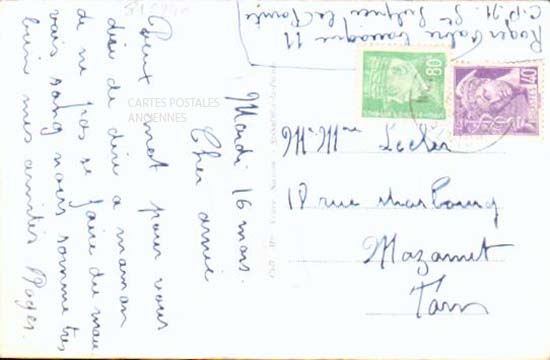 Roger Fabre baraque 11
C.P. 21. St Sulpice la Pointe
80c
40
CARTES POSTALES
ANCIENNES
Mardi 16 mars.
Cher amie
Deux mot pour vous
dire de dire a maman
de ne pas se faire du mau
vais sang nous somme tres
bien mes amitiés Roger.
Mr Mme
18 rue
Mazamet
Tarn